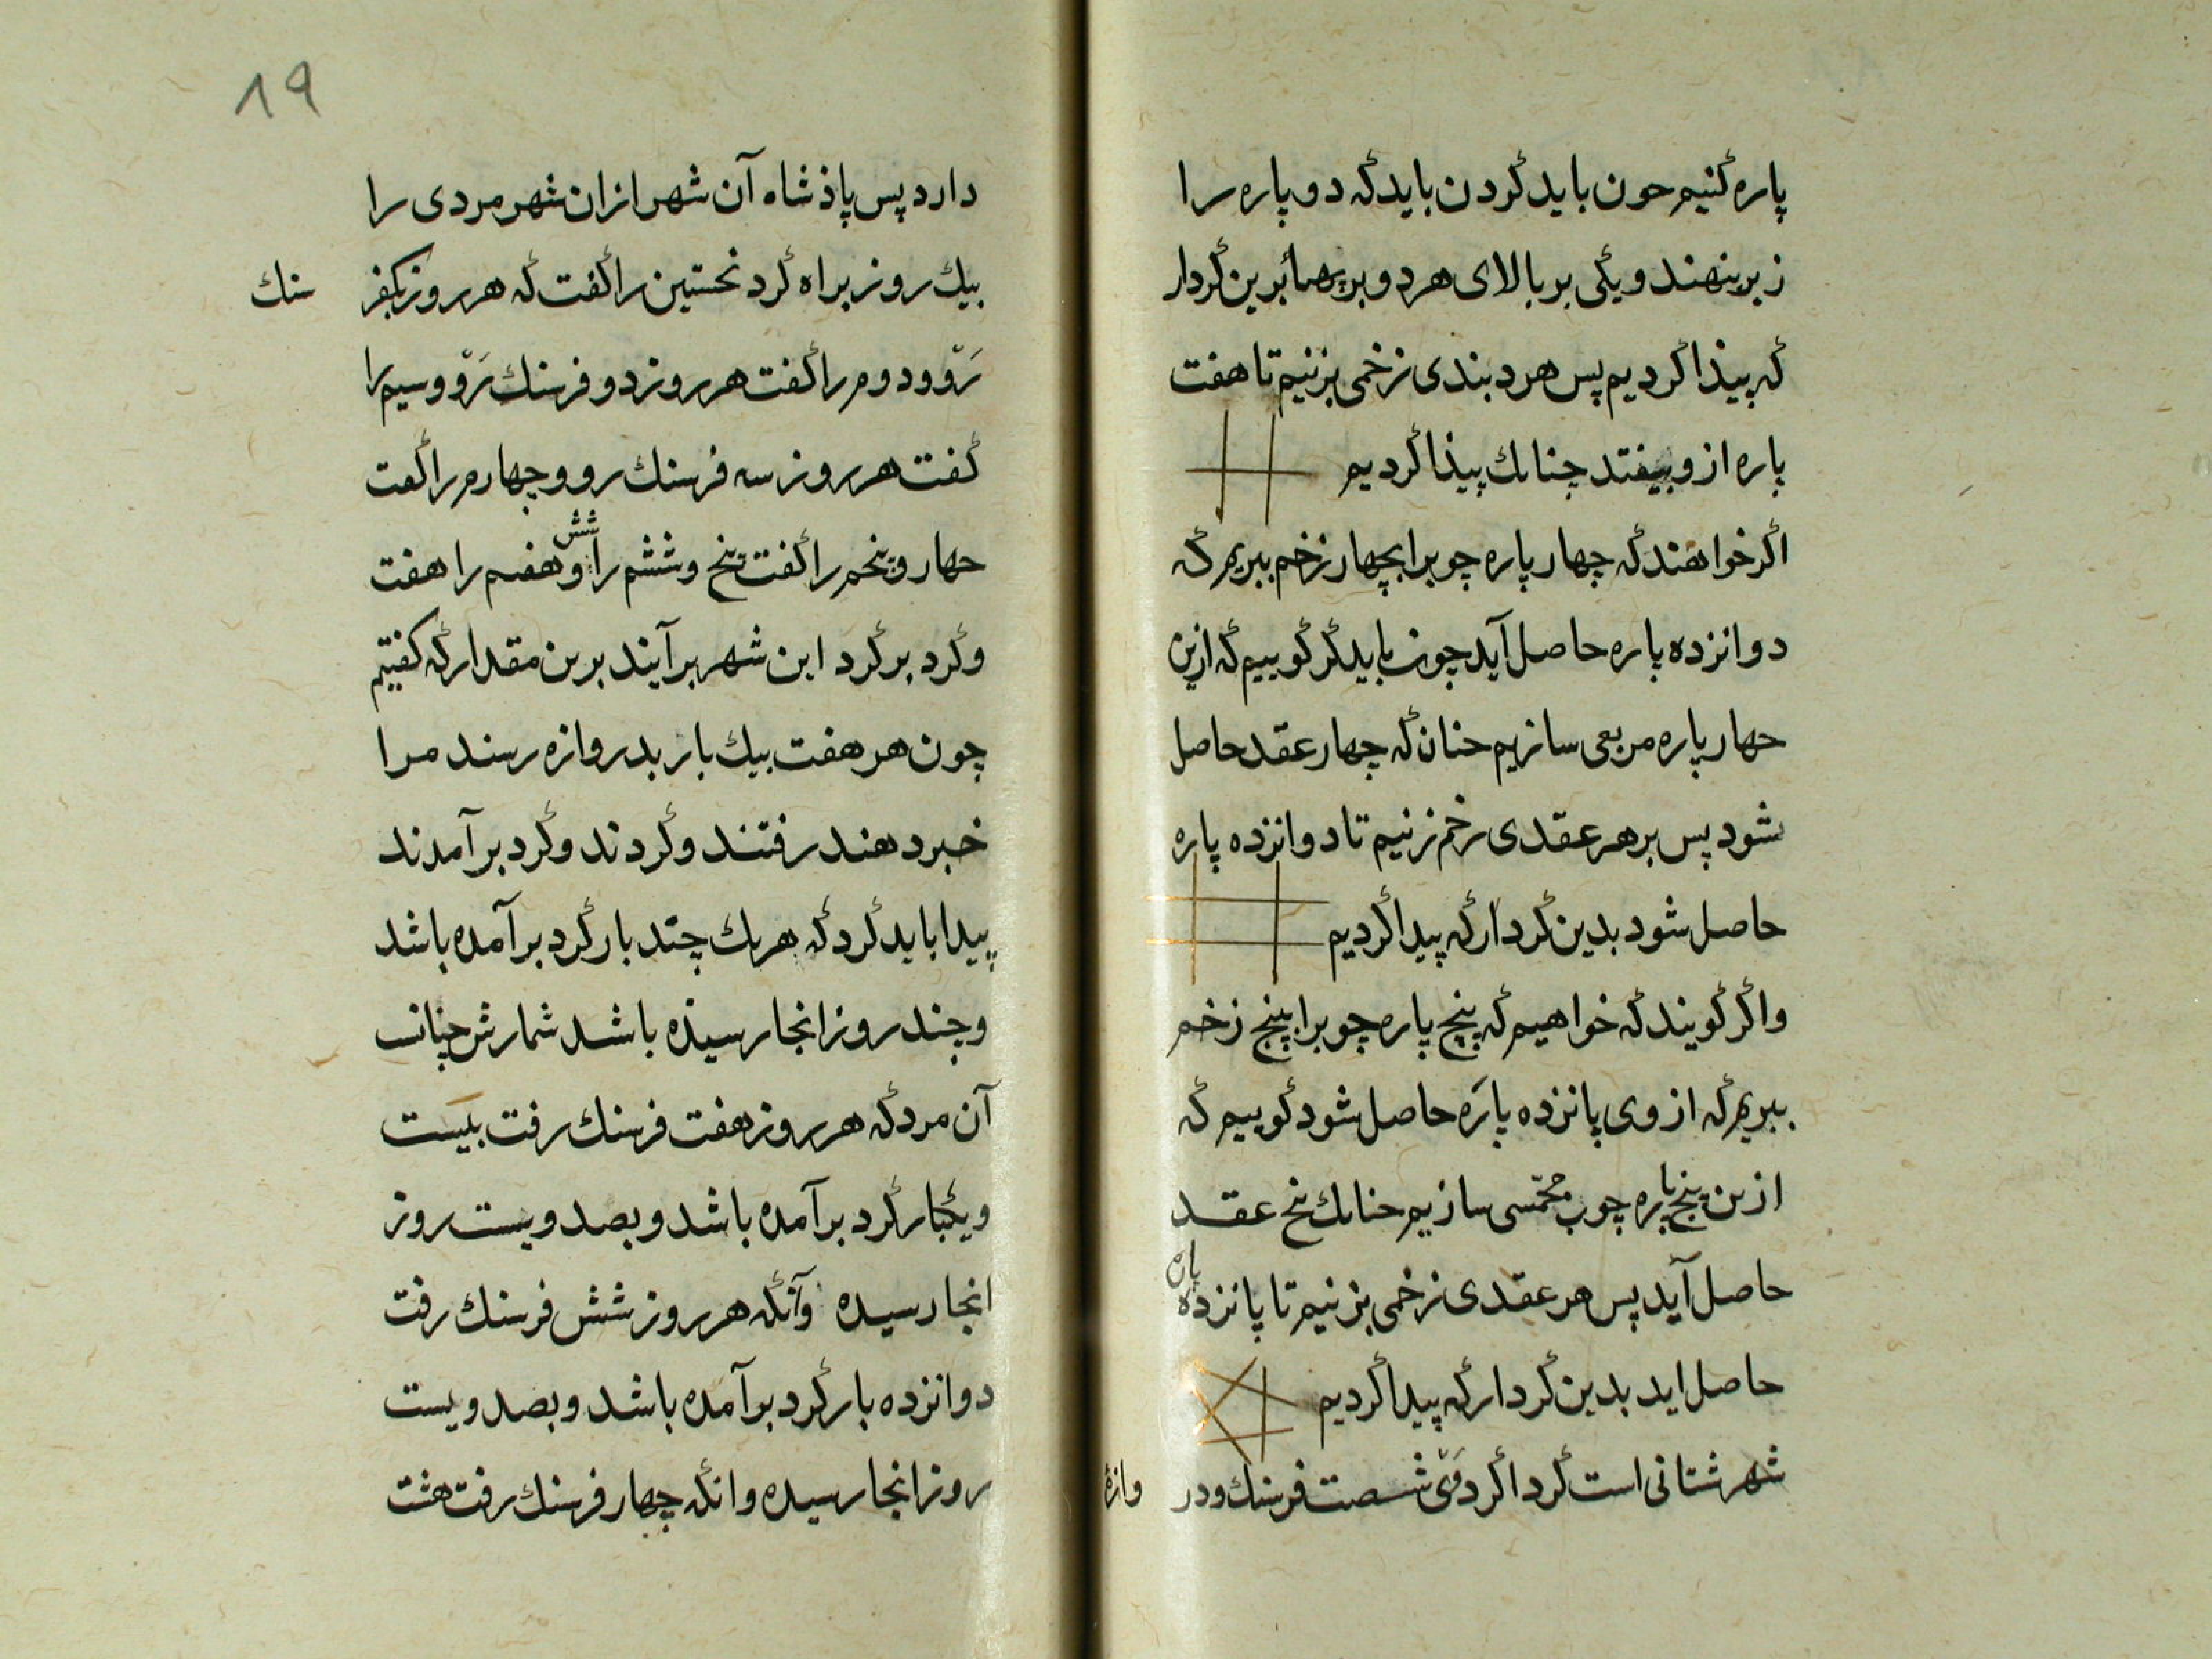 پاره کنیم حون باید کردن باید که دو پاره را
زبر بنهند و یکی بر بالای هر دو بر پهنا برین کردار
که پیذا کردیم پس هر دبندی زخمی بزنیم تا هفت
پاره از و بیفتد چنانك پیذا کردیم
اکر خواهند که چهار پاره چوبرا بچهار زخم ببریم که
دوانزده پاره حاصل آید چون باید کر کوییم که ازین
حهار پاره مربعی سازیم حنان که چهار عقد حاصل
شود پس بر هر عقدی زخم زنیم تا دوانزده پاره
حاصل شود بدین کردار که پیدا کردیم
واکر کویند که خواهیم که پنج پاره چوبرا بپنج زخم
ببریم که از وی پانزده پاره حاصل شود کوییم که
ازین پنج پاره چوب مخمّسی سازیم حنانك پنج عقد
حاصل آید پس هر عقدی زخمی بزنیم تا پانزده پاره
حاصل اید بدین کردار که پیدا کردیم
شهرشتانی است کرداکرد وَیْ شصت فرسنك و در وازۀ
19
دارد پس پاذشاه آن شهر ازان شهر مردی را
بیك روز براه کرد نخستین را کفت که هر روز یکفر سنك
رَوْ و دوم را کفت هر روز دو فرسنك رَوْ و سیم را
کفت هر روز سه فرسنك رو و چهارم را کفت
حهار و پنجم را کفت پنج و ششم را شش و هفتم را هفت
و کرد بر کرد این شهر برآیند برین مقدار که کفتیم
چون هر هفت بیك بار بدروازه رسند مرا
خبر دهند رفتند و کردند و کرد برآمدند
پیدا باید کرد که هر یك چند بار کرد برآمده باشد
و چند روز انجا رسیذه باشد شمارش چنانست
آن مرد که هر روز هفت فرسنك رفت بیست
و یکبار کرد برآمده باشد و بصد و بیست روز
انجا رسیده وآنکه هر روز شش فرسنك رفت
دوانزده بار کرد برآمده باشد و بصد و بیست
روز انجا رسیده وانکه چهار فرسنك رفت هشت